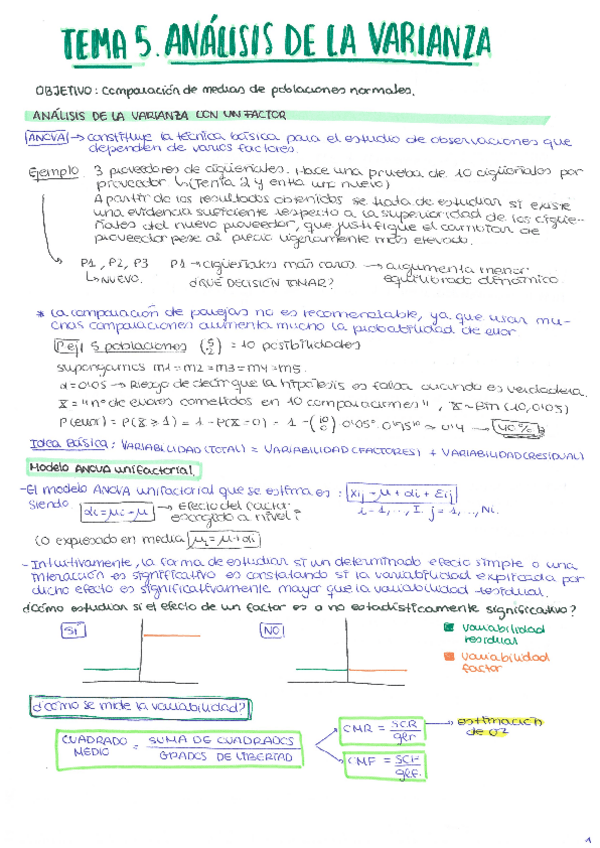 TEMA 5. ANÁLISIS DE LA VARIANZA
OBJETIVO: Comparación de medias de poblaciones normales.
ANÁLISIS DE LA VARIANZA CON UN FACTOR
ANOVA → constituye la técnica básica para el estudio de observaciones que
dependen de varios factores.
Ejemplo 3 proveedores de cigüeñales. Hace una prueba de 10 cigüeñales por
proveedor ↳(Tenía 2 y entra uno nuevo)
A partir de los resultados obtenidos se trata de estudiar si existe
una evidencia suficiente respecto a la superioridad de los cigüe-
ñales del nuevo proveedor, que justifique el cambiar de
proveedor pese al precio ligeramente más elevado.
P1, P2, P3 P1 → cigüeñales más caros. → argumenta menor
↳NUEVO. ¿QUÉ DECISIÓN TOMAR? equilibrado dinámico.
* La comparación de parejas no es recomendable, ya que usar mu-
chas comparaciones aumenta mucho la probabilidad de error
P.ej. 5 poblaciones (5 2) = 10 posibilidades
supongamos m1=m2=m3=m4=m5.
α=0'05 → Riesgo de decir que la hipótesis es falsa cuando es verdadera.
X = "nº de errores cometidos en 10 comparaciones", X~Bin(10,0'05)
P(error) = P(X≥1) = 1 - P(X=0) = 1 - (10 0) 0'05⁰ · 0'95¹⁰ ≈ 0'4 → 40%
Idea Básica: VARIABILIDAD(TOTAL) = VARIABILIDAD(FACTORES) + VARIABILIDAD(RESIDUAL)
Modelo ANOVA unifactorial.
-El modelo ANOVA unifactorial que se estima es: Xij = μ + αi + Eij
Siendo αi = μi - μ → Efecto del factor i = 1, .., I. j = 1, .., Ni.
escogido a nivel i
(o expresado en media μi = μ+αi
- Intuitivamente, la forma de estudiar si un determinado efecto simple o una
interacción es significativo es constatando si la variabilidad explicada por
dicho efecto es significativamente mayor que la variabilidad residual.
¿Cómo estudiar si el efecto de un factor es o no estadísticamente significativo?
SÍ NO variabilidad
residual
variabilidad
factor
¿Cómo se mide la variabilidad?
CUADRADO MEDIO = SUMA DE CUADRADOS / GRADOS DE LIBERTAD
CMR = SCR / glr → estimación
de σ²
CMF = SCF / glf.
1